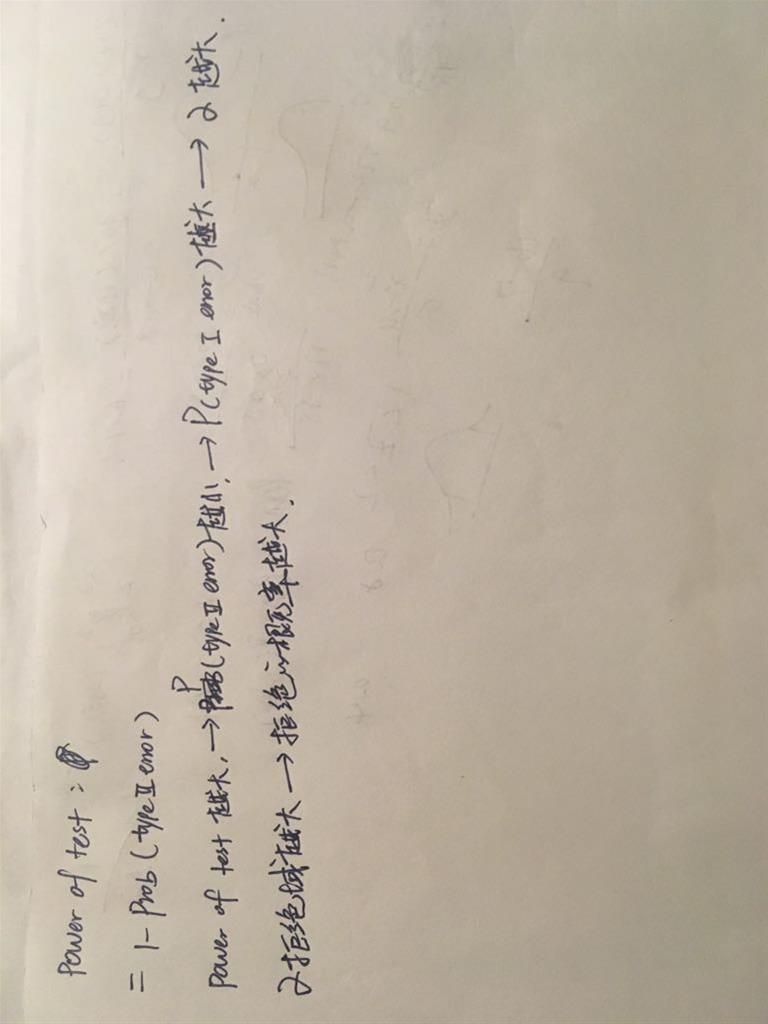 Power of test :
= 1 - Prob ( type II error )
Power of test 越大, → P ( type II error ) 越小, → P ( type I error ) 越大 → α 越大.
α 拒绝域越大 → 拒绝的概率越大.